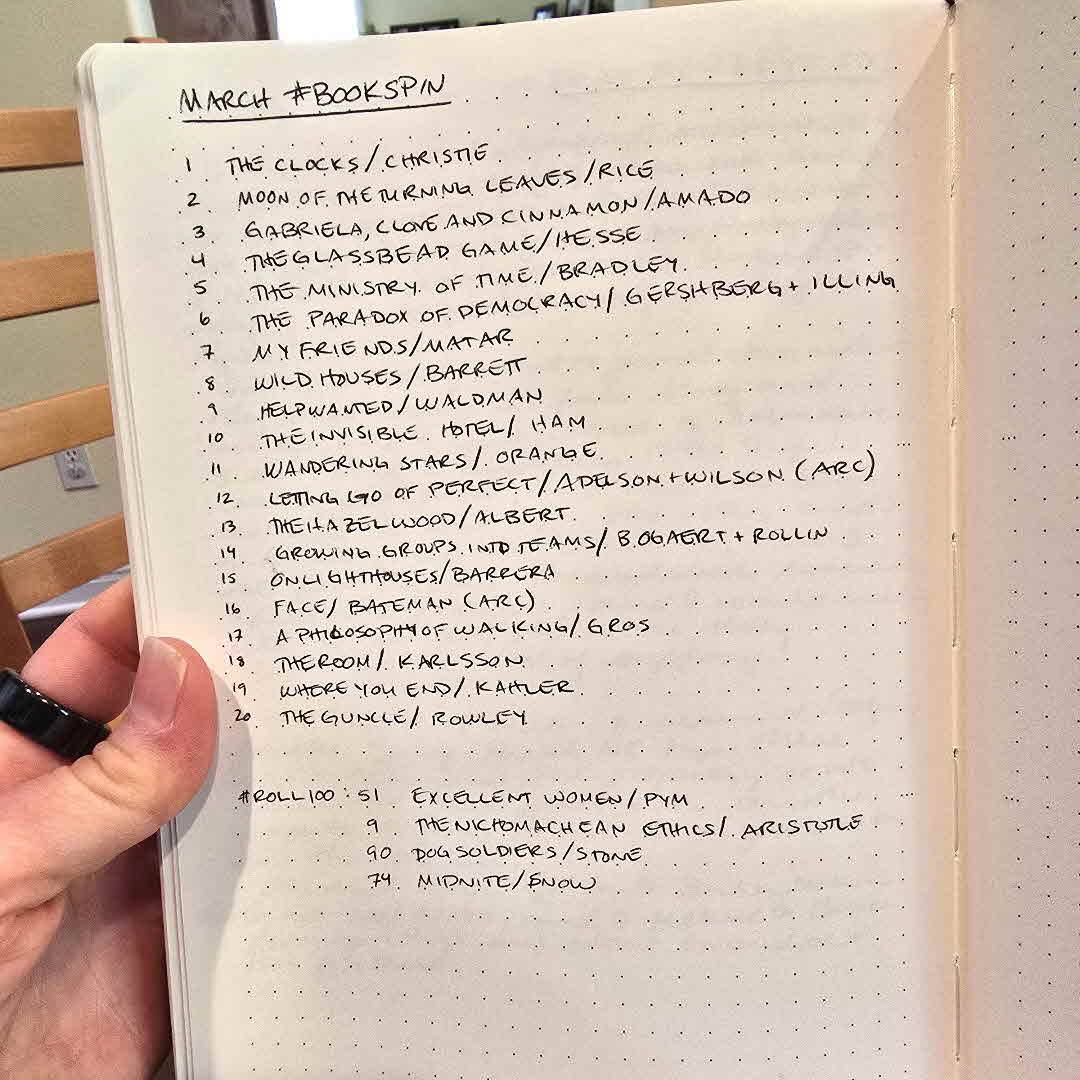 MARCH #BOOKSPIN
1 THE CLOCKS/CHRISTIE
2 MOON OF THE TURNING LEAVES/RICE
3 GABRIELA, CLOVE AND CINNAMON/AMADO
4 THE GLASS BEAD GAME/HESSE
5 THE MINISTRY OF TIME/BRADLEY
6 THE PARADOX OF DEMOCRACY/GERSHBERG + ILLING
7 MY FRIENDS/MATAR
8 WILD HOUSES/BARRETT
9 HELP WANTED/WALDMAN
10 THE INVISIBLE HOTEL/HAM
11 WANDERING STARS/ORANGE
12 LETTING GO OF PERFECT/ADELSON + WILSON (ARC)
13 THE HAZEL WOOD/ALBERT
14 GROWING GROUPS INTO TEAMS/BOGAERT + ROLLIN
15 ON LIGHTHOUSES/BARRERA
16 FACE/BATEMAN (ARC)
17 A PHILOSOPHY OF WALKING/GROS
18 THE ROOM/KARLSSON
19 WHERE YOU END/KAHLER
20 THE GUNCLE/ROWLEY
#ROLL100: 51 EXCELLENT WOMEN/PYM
9 THE NICHOMACHEAN ETHICS/ARISTOTLE
90 DOG SOLDIERS/STONE
74 MIDNITE/SNOW